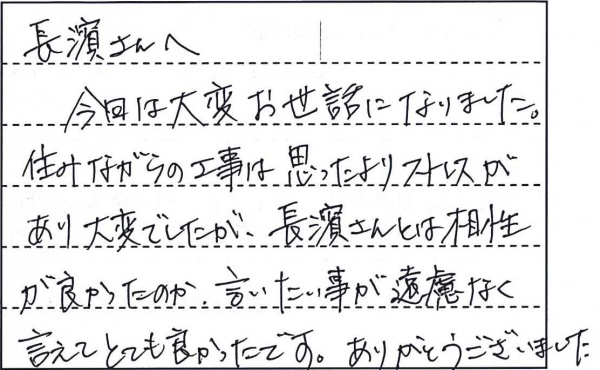 長濱さんへ
今回は大変お世話になりました。
住みながらの工事は思ったよりストレスが
あり大変でしたが、長濱さんとは相性
が良かったのか、言いたい事が遠慮なく
言えてとても良かったです。ありがとうございました